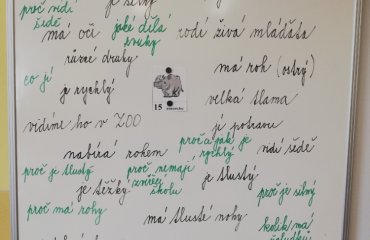 proč vidí je silný
šedě, má oči jaké dělá zvuky rodí živá mláďata
různé druhy
co jí má roh (ostrý)
je rychlý 15 velká tlama
vidíme ho v ZOO jí potravu
proč a jak je rychlý
nabírá rohem vidí šedě
proč je tlustý proč nemají zvířecí školu je tlustý
je těžký proč je silný
proč má rohy
má tlusté nohy kolik má
žaludků